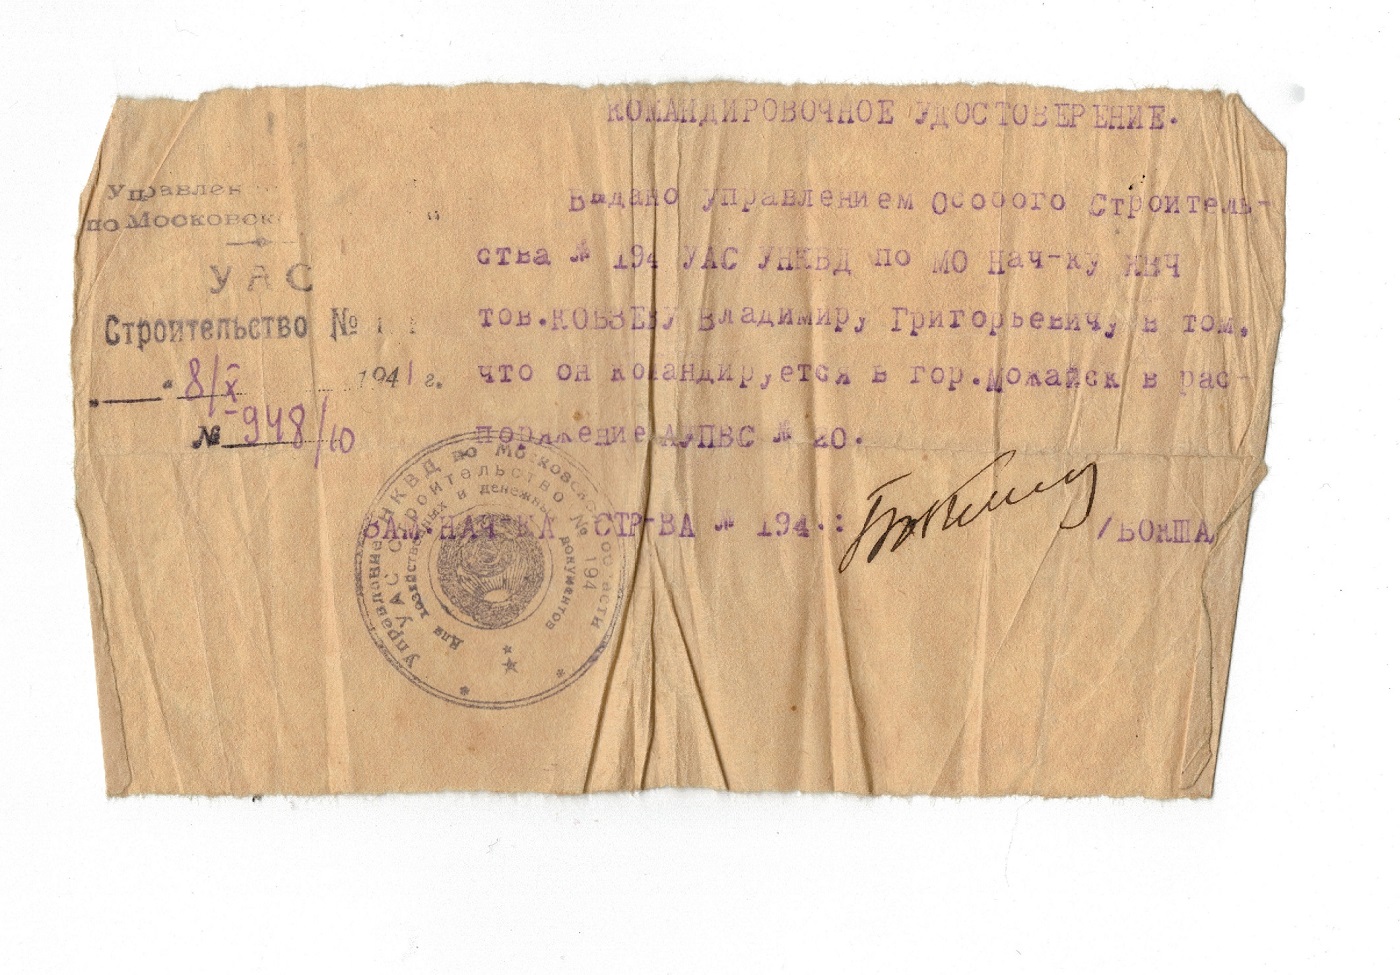 КОМАНДИРОВОЧНОЕ УДОСТОВЕРЕНИЕ.
Управлен
по Московск
УАС
Строительство №
8/X 1941 г.
№ 948/60
Выдано Управлением Особого Строитель-
ства № 194 УАС УНКВД по МО Нач-ку КВЧ
тов.КОБЗЕВУ Владимиру Григорьевичу в том,
что он командируется в гор.Можайск в рас-
поряжение АУПВС № 20.
ЗАМ.НАЧ-КА СТР-ВА № 194.: /БОКША/
Управление НКВД по Московской области
УАС Строительство № 194
Для хозяйственных и денежных документов